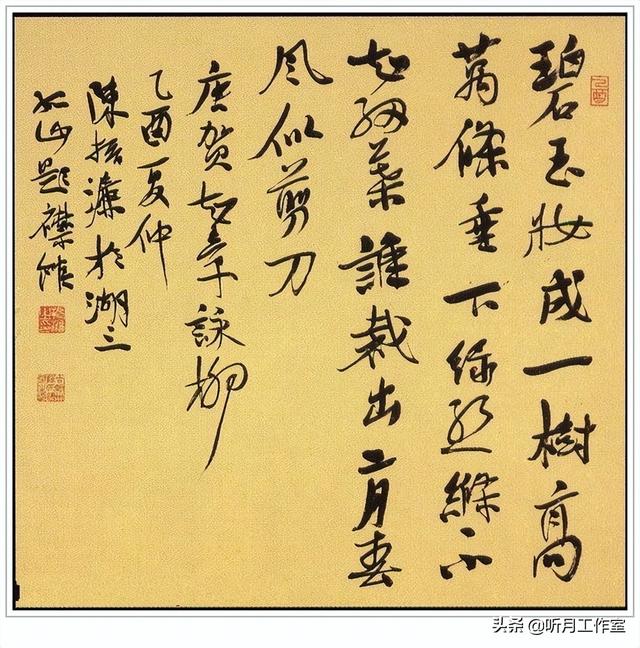 碧玉妝成一樹高
萬條垂下綠絲絛不
知細葉誰裁出二月春
风似剪刀
唐贺知章詠柳
乙酉夏仲
陳振濂於湖
山題襟館
头条 @听月工作室